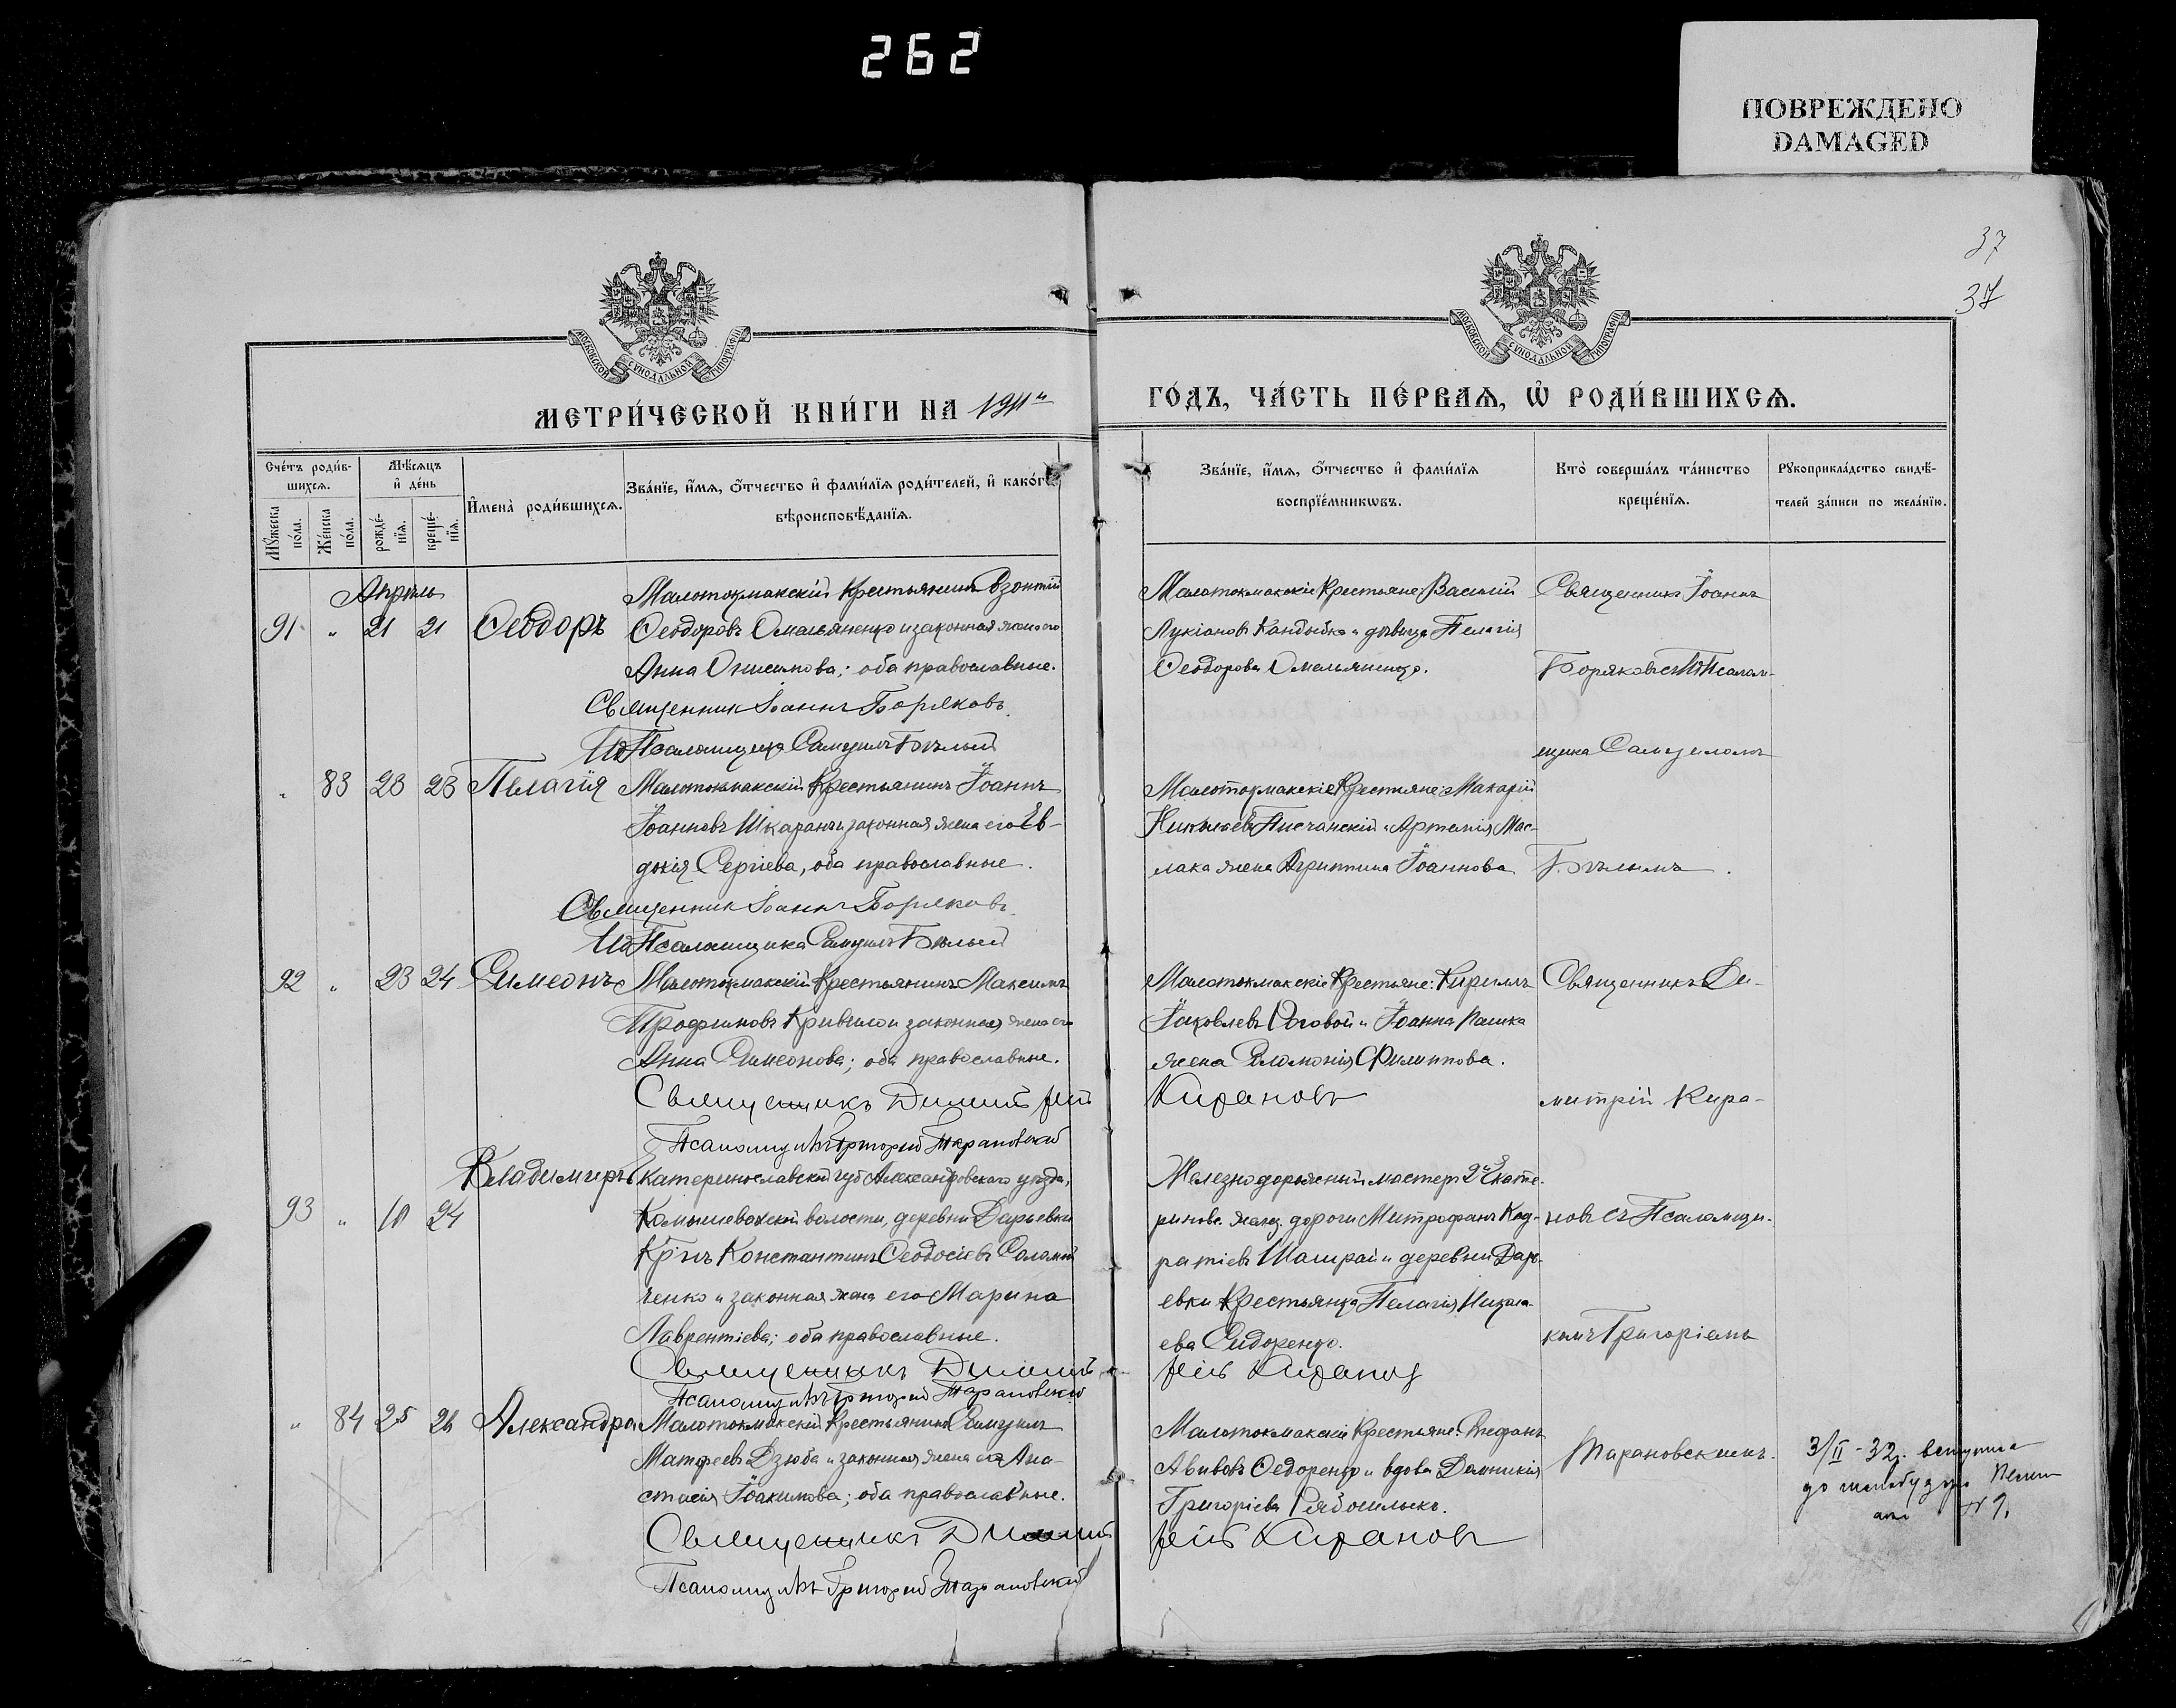 262
ПОВРЕЖДЕНО
DAMAGED
37
37
МОСКОВСКОЙ СѴНОДАЛЬНОЙ ТИПОГРАФІИ
МОСКОВСКОЙ СѴНОДАЛЬНОЙ ТИПОГРАФІИ
МЕТРИ́ЧЕСКОЙ КНИ́ГИ НА 1911й
ГО́ДЪ, ЧА́СТЬ ПЕ́РВАѦ, Ѡ РОДИ́ВШИХСѦ.
Сче́тъ роди́в-
шихсѧ.
Мꙋ́жеска по́ла.
Же́нска по́ла.
Мѣ́сѧцъ
и҆ де́нь
рожде́-нїѧ.
креще́-нїѧ.
И҆мена̀ роди́вшихсѧ.
Зва́нїе, и҆́мѧ, ѻ҆́тчество и҆ фами́лїѧ роди́телей, и҆ како́гѡ
вѣроисповѣ́данїѧ.
Зва́нїе, и҆́мѧ, ѻ҆́тчество и҆ фами́лїѧ
воспрїе́мникѡвъ.
Кто̀ соверша́лъ та́инство
креще́нїѧ.
Рꙋкоприкла́дство свидѣ́-
телей за́писи по жела́нїю.
Апрѣль
91 " 21 21 Ѳеодоръ
Малотокмакскій крестьянинъ
Ѳеодоровъ Омельяненко и законная жена его
Анна Онисимова; оба православные.
Священникъ Іоаннъ Боряковъ
Ио Псаломщика Самуилъ Бѣлый
Малотокмакскіе крестьяне: Василій
Лукіановъ Кандыбка и дѣвица Пелагія
Ѳеодорова Омельяненко.
Священникъ Іоаннъ
Боряковъ съ Ио Псалом-
щика Самуиломъ
Бѣлымъ.
" 83 23 23 Пелагія
Малотокмакскій крестьянинъ Іоаннъ
Іоанновъ Шкаранъ и законная жена его Ев-
докія Сергіева, оба православные.
Священникъ Іоаннъ Боряковъ
Ио Псаломщика Самуилъ Бѣлый
Малотокмакскіе крестьяне: Макарій
Песчанскій и Артемія Мас-
лака жена Агриппина Іоаннова
92 " 23 24 Симеонъ
Малотокмакскій крестьянинъ Максимъ
Трофимовъ и законная жена его
Анна Симеонова; оба православные.
Священникъ Димитрій Кирановъ
Псаломщикъ Григорій Тарановскій
Малотокмакскіе крестьяне: Кириллъ
Іаковлевъ Роговой и Іоанна Пашка
жена Соломонія Филиппова.
Священникъ Ди-
митрій Кира-
новъ съ Псаломщи-
комъ Григоріемъ
Тарановскимъ.
93 " 10 24 Владимиръ
Екатеринославской губ. Александровскаго уѣзда,
Комышевахской волости, деревни Дарьевки
Кр-нъ Константинъ Ѳеодосіевъ Соломон-
ченко и законная жена его Марина
Лаврентіева; оба православные.
Священникъ Димитрій Кирановъ
Псаломщикъ Григорій Тарановскій
Железнодорожный мастеръ 2й Екате-
ринов. желѣз. дороги Митрофанъ Код-
ратіевъ Шашрай и деревни Дарь-
евки крестьянка Пелагія Никола-
ева Сидоренко.
" 84 25 26 Александра
Малотокмакскій крестьянинъ Самуилъ
Матфеевъ Дзюба и законная жена его Ана-
стасія Іоакимова; оба православные.
Священникъ Димитрій Кирановъ
Псаломщикъ Григорій Тарановскій
Малотокмакскіе крестьяне: Стефанъ
Авивовъ Ѳедоренко и вдова Домникія
Григоріева Рябошлыкъ.
3/II-32
№ 9.